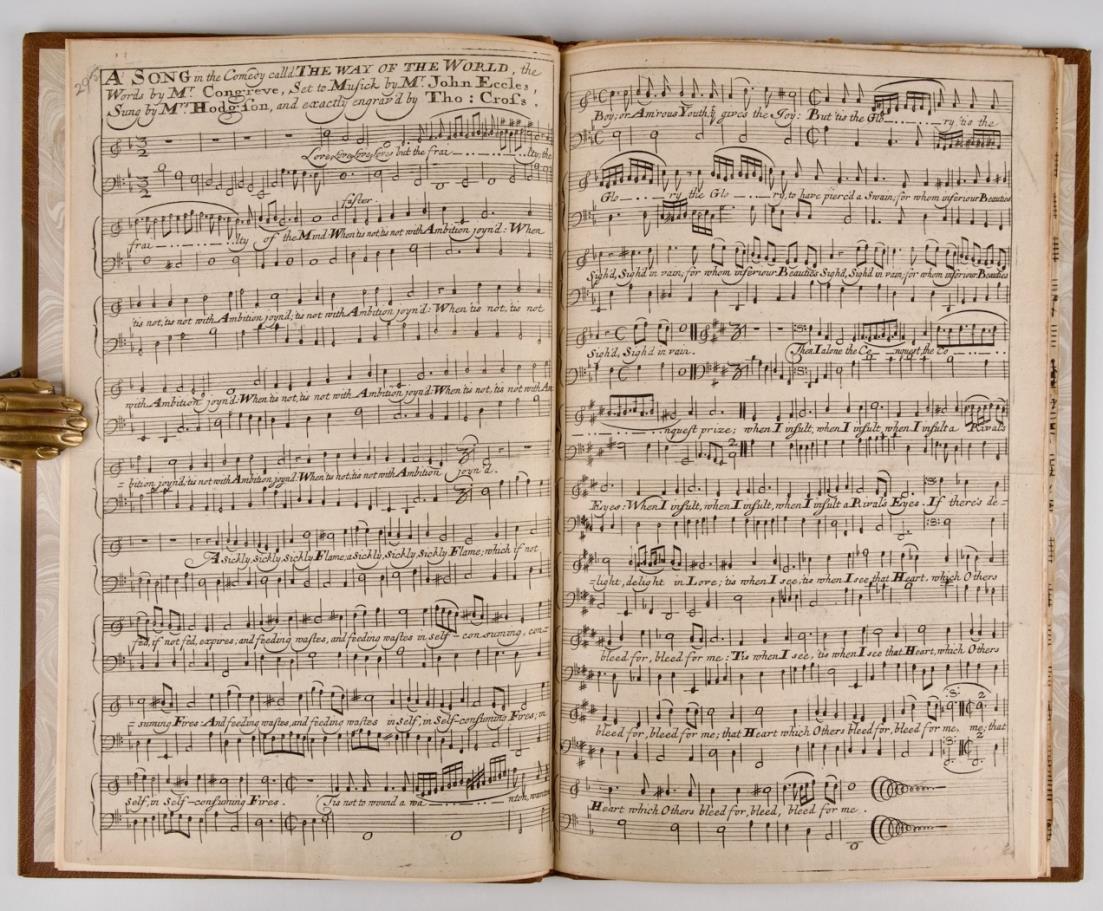 295
A SONG in the Comedy call'd THE WAY OF THE WORLD, the
Words by Mr. Congreve, Set to Musick by Mr. John Eccles,
Sung by Mrs. Hodgson, and exactly engrav'd by Tho: Cross.
Love, Love, Love, Love's but the frai — — — lty, the
faster.
frai — — — lty of the Mind When tis not, tis not with Ambition joyn'd: When
'tis not, tis not with Ambition joyn'd; tis not with Ambition joyn'd: When 'tis not, tis not
with Ambition joyn'd: When tis not, tis not with Ambition joyn'd: When tis not, tis not with Am
= bition joyn'd, tis not with Ambition joyn'd. When tis not, tis not with Ambition joyn'd.
A sickly, sickly, sickly Flame, a sickly, sickly, sickly Flame; which if not
fed, if not fed, expires, and feeding wastes, and feeding wastes in self-consuming, con=
= suming Fires: And feeding wastes, and feeding wastes in self, in Self-consuming Fires; in
self, in Self-consuming Fires. Tis not to wound a wa — — — nton, wanton
Boy; or Am'rous Youth, that gives the Joy: But 'tis the Glo — — — ry, 'tis the
Glo — — — ry, the Glo — — — ry, to have pierc'd a Swain; for whom inferiour Beauties
Sigh'd, Sigh'd in vain; for whom inferiour Beauties Sigh'd, Sigh'd in vain; for whom inferiour Beauties
Sigh'd, Sigh'd in vain. Then I alone the Co — nquest, the Co — — —
— — — nquest prize; when I insult, when I insult, when I insult a Rivals
Eyes: When I insult, when I insult, when I insult a Rivals Eyes. If there's de=
= light, delight in Love; tis when I see, tis when I see that Heart, which Others
bleed for, bleed for me: Tis when I see, tis when I see that Heart, which Others
bleed for, bleed for me; that Heart which Others bleed for, bleed for me, me; that
Heart which Others bleed for, bleed, bleed for me.